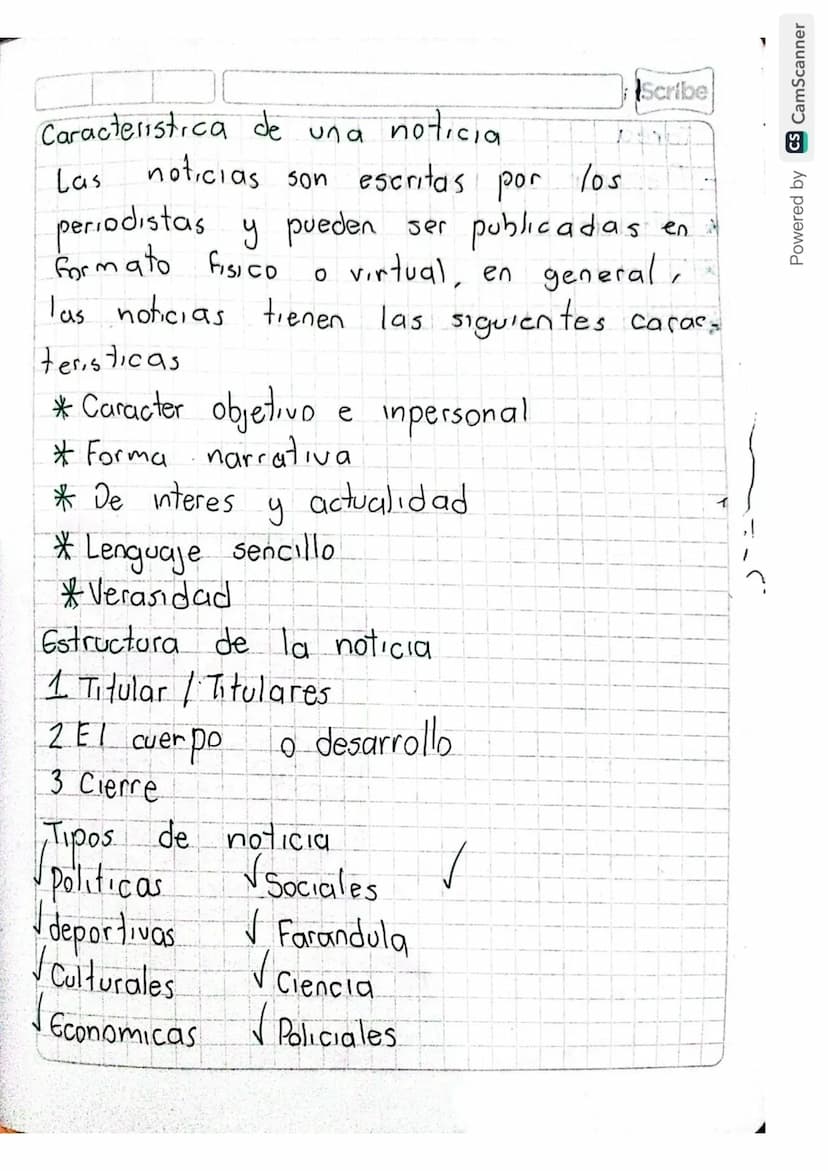 Scribe
Caracteristica de una noticia
Las noticias son escritas por los
periodistas y pueden ser publicadas en
formato fisico o virtual, en general,
las noticias tienen las siguientes carac-
teristicas
* Caracter objetivo e inpersonal
* Forma narrativa
* De interes y actualidad
* Lenguaje sencillo
* Verasidad
Estructura de la noticia
1 Titular / Titulares
2 El cuerpo o desarrollo
3 Cierre
Tipos de noticia
✓ Politicas ✓ Sociales ✓
✓ deportivas ✓ Farandula
✓ Culturales ✓ Ciencia
✓ Economicas ✓ Policiales
Powered by CS CamScanner